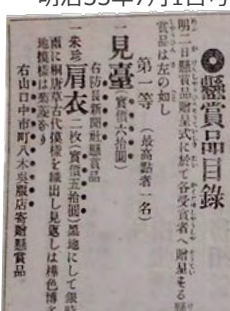 明治33年7月1日
懸賞品目錄
明二日懸賞品贈呈式に於て各受賞者へ贈呈する懸
賞品は左の如し
第一等(最高點者一名)
一見臺(實價六拾圓)
右防長新聞社懸賞品
一朱珍肩衣二枚(實價五拾圓)黑地にして銀
雨に桐唐草古代模樣を織出し見返しは樺色博多
地模樣は菊菱なり
右山口中市町八木吳服店寄贈懸賞品